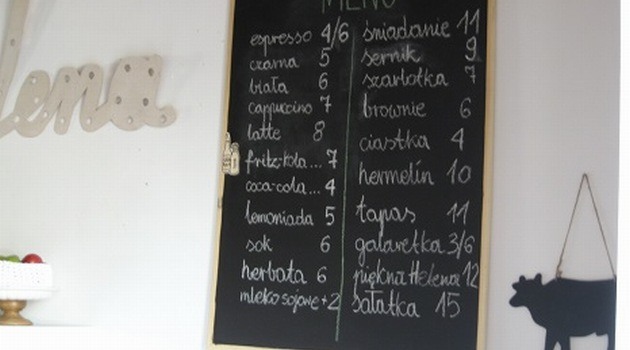 MENU
espresso 4/6
czarna 5
biała 6
cappuccino 7
latte 8
fritz-kola... 7
coca-cola... 4
lemoniada 5
sok 6
herbata 6
mleko sojowe +2
śniadanie 11
sernik 9
szarlotka 7
brownie 6
ciastka 4
hermelin 10
tapas 11
galaretka 3/6
piękna Helena 12
sałatka 15
lena